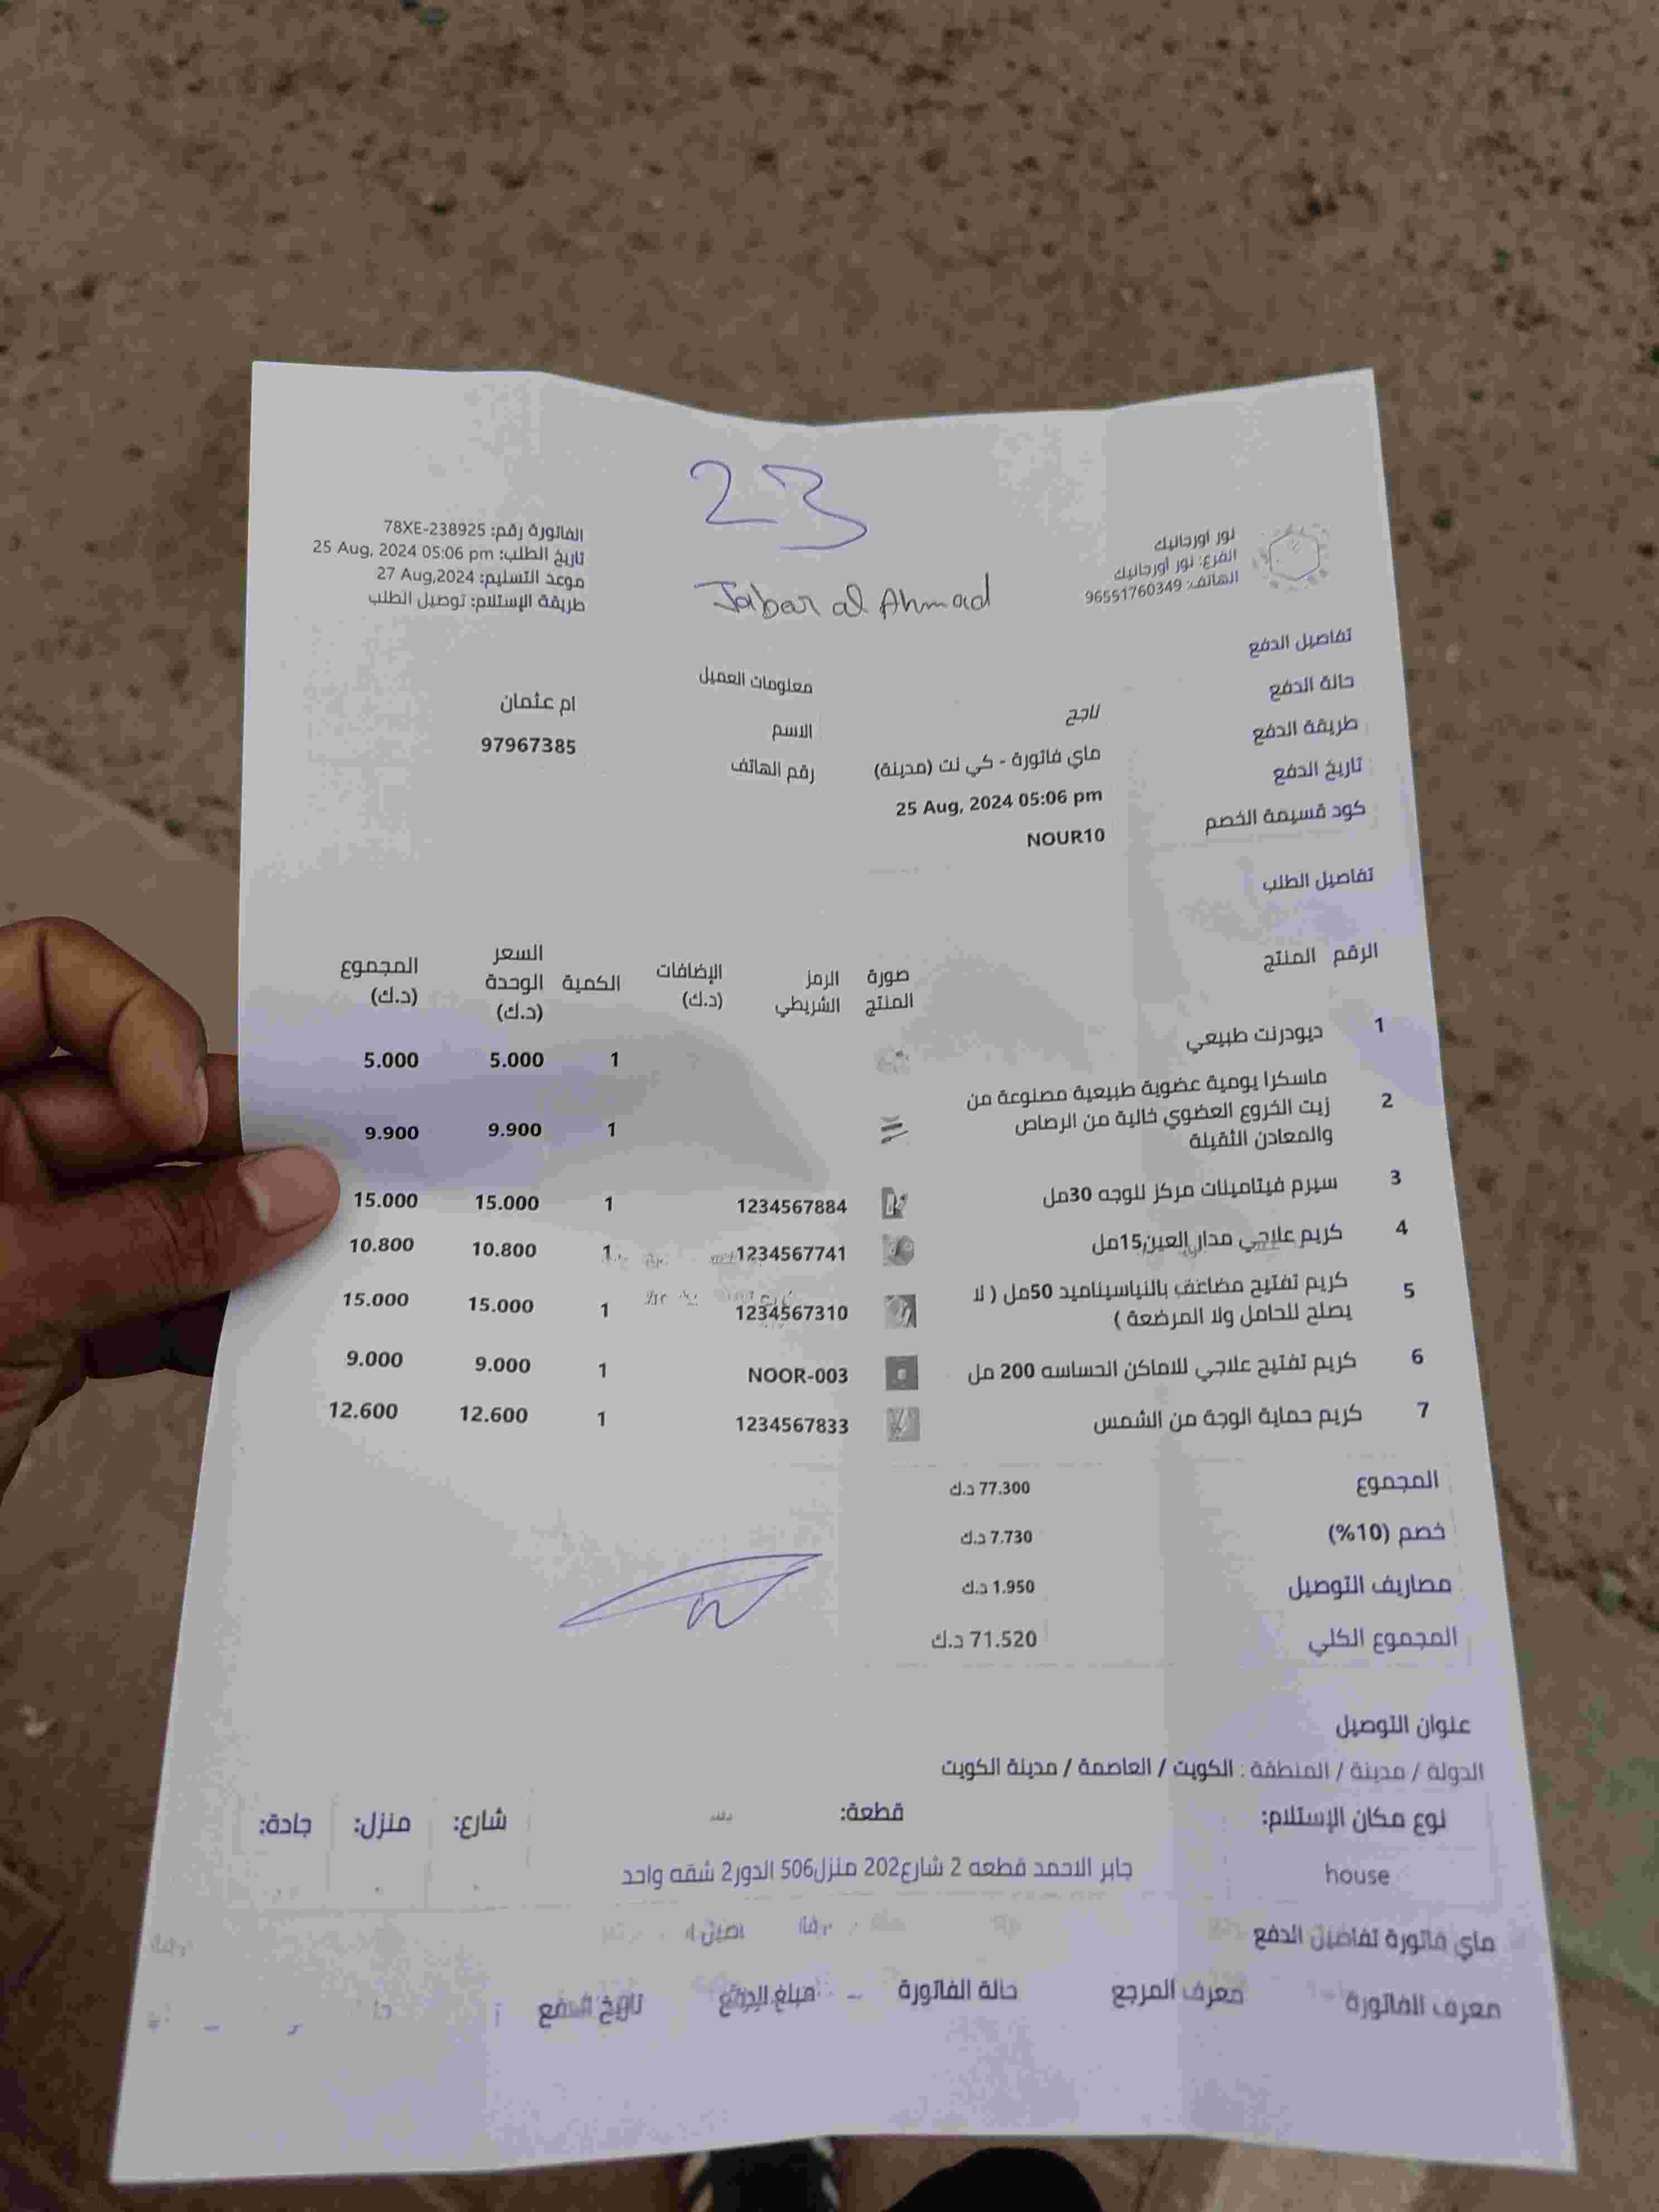 23
Jabar al Ahmad
نور اورجانيك
الفرع: نور أورجانيك
الهاتف: 96551760349
الفاتورة رقم: 78XE-238925
تاريخ الطلب: 25 Aug, 2024 05:06 pm
موعد التسليم: 27 Aug,2024
طريقة الإستلام: توصيل الطلب
تفاصيل الدفع
حالة الدفع ناجح
طريقة الدفع ماي فاتورة - كي نت (مدينة)
تاريخ الدفع 25 Aug, 2024 05:06 pm
كود قسيمة الخصم NOUR10
معلومات العميل
الاسم ام عثمان
رقم الهاتف 97967385
تفاصيل الطلب
الرقم المنتج صورة المنتج الرمز الشريطي الإضافات (د.ك) الكمية السعر الوحدة (د.ك) المجموع (د.ك)
1 ديودرنت طبيعي 1 5.000 5.000
2 ماسكرا يومية عضوية طبيعية مصنوعة من
زيت الخروع العضوي خالية من الرصاص 1 9.900 9.900
والمعادن الثقيلة
3 سيرم فيتامينات مركز للوجه 30مل 1234567884 1 15.000 15.000
4 كريم علاجي مدار العين15مل 1234567741 1 10.800 10.800
5 كريم تفتيح مضاعف بالنياسيناميد 50مل ( لا
يصلح للحامل ولا المرضعة ) 1234567310 1 15.000 15.000
6 كريم تفتيح علاجي للاماكن الحساسه 200 مل NOOR-003 1 9.000 9.000
7 كريم حماية الوجة من الشمس 1234567833 1 12.600 12.600
المجموع 77.300 د.ك
خصم (10%) 7.730 د.ك
مصاريف التوصيل 1.950 د.ك
المجموع الكلي 71.520 د.ك
عنوان التوصيل
الدولة / مدينة / المنطقة : الكويت / العاصمة / مدينة الكويت
نوع مكان الإستلام: قطعة: شارع: منزل: جادة:
house جابر الاحمد قطعه 2 شارع202 منزل506 الدور2 شقه واحد
ماي فاتورة تفاصيل الدفع
معرف الفاتورة معرف المرجع حالة الفاتورة مبلغ الدفع تاريخ الدفع